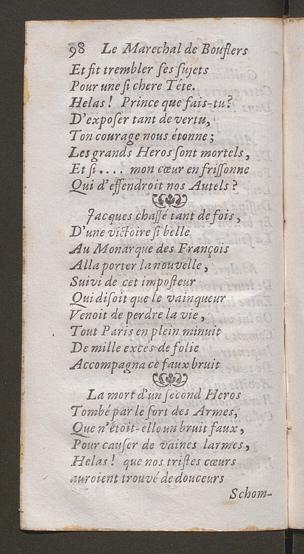 98 Le Marechal de Bouflers
Et fit trembler ses sujets
Pour une si chere Tête.
Helas ! Prince que fais-tu?
D'exposer tant de vertu,
Ton courage nous étonne ;
Les grands Heros sont mortels,
Et si .... mon cœur en frissonne
Qui d'effendroit nos Autels ?
Jacques chassé tant de fois,
D'une victoire si belle
Au Monarque des François
Alla porter la nouvelle,
Suivi de cet imposteur
Qui disoit que le vainqueur
Venoit de perdre la vie,
Tout Paris en plein minuit
De mille exces de folie
Accompagna ce faux bruit
La mort d'un second Heros
Tombé par le sort des Armes,
Que n'étoit-elle un bruit faux,
Pour causer de vaines larmes,
Helas ! que nos tristes cœurs
auroient trouvé de douceurs
Schom-